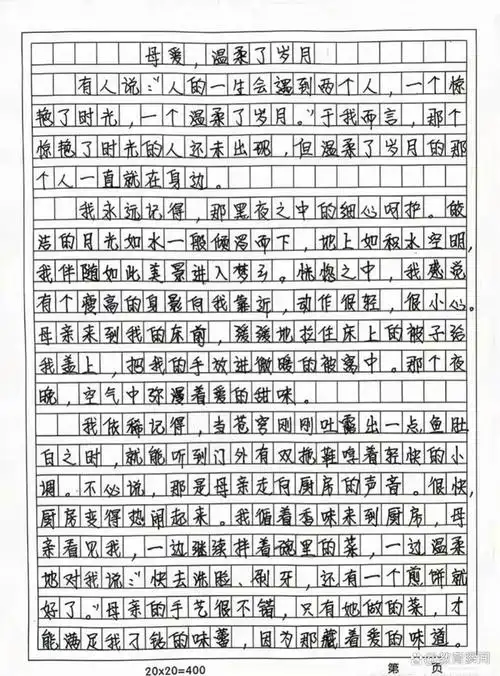 母爱，温柔了岁月
有人说：“人的一生会遇到两个人，一个惊
艳了时光，一个温柔了岁月。”于我而言，那个
惊艳了时光的人还未出现，但温柔了岁月的那
个人一直就在身边。
我永远记得，那黑夜之中的细心呵护。皎
洁的月光如水一般倾泻而下，地上如积水空明，
我伴随如此美景进入梦乡。恍惚之中，我感觉
有个瘦高的身影向我靠近，动作很轻，很小心。
母亲来到我的床前，缓缓地拉住床上的被子给
我盖上，把我的手放进微暖的被窝中。那个夜
晚，空气中弥漫着爱的甜味。
我依稀记得，当苍穹刚刚吐露出一点鱼肚
白之时，就能听到门外有双拖鞋哼着轻快的小
调。不必说，那是母亲走向厨房的声音。很快，
厨房变得热闹起来。我循着香味来到厨房，母
亲看见我，一边继续拌着碗里的菜，一边温柔
地对我说：“快去洗脸、刷牙，还有一个煎饼就
好了。”母亲的手艺很不错，只有她做的菜，才
能满足我刁钻的味蕾，因为那藏着爱的味道。
20×20=400
第 页